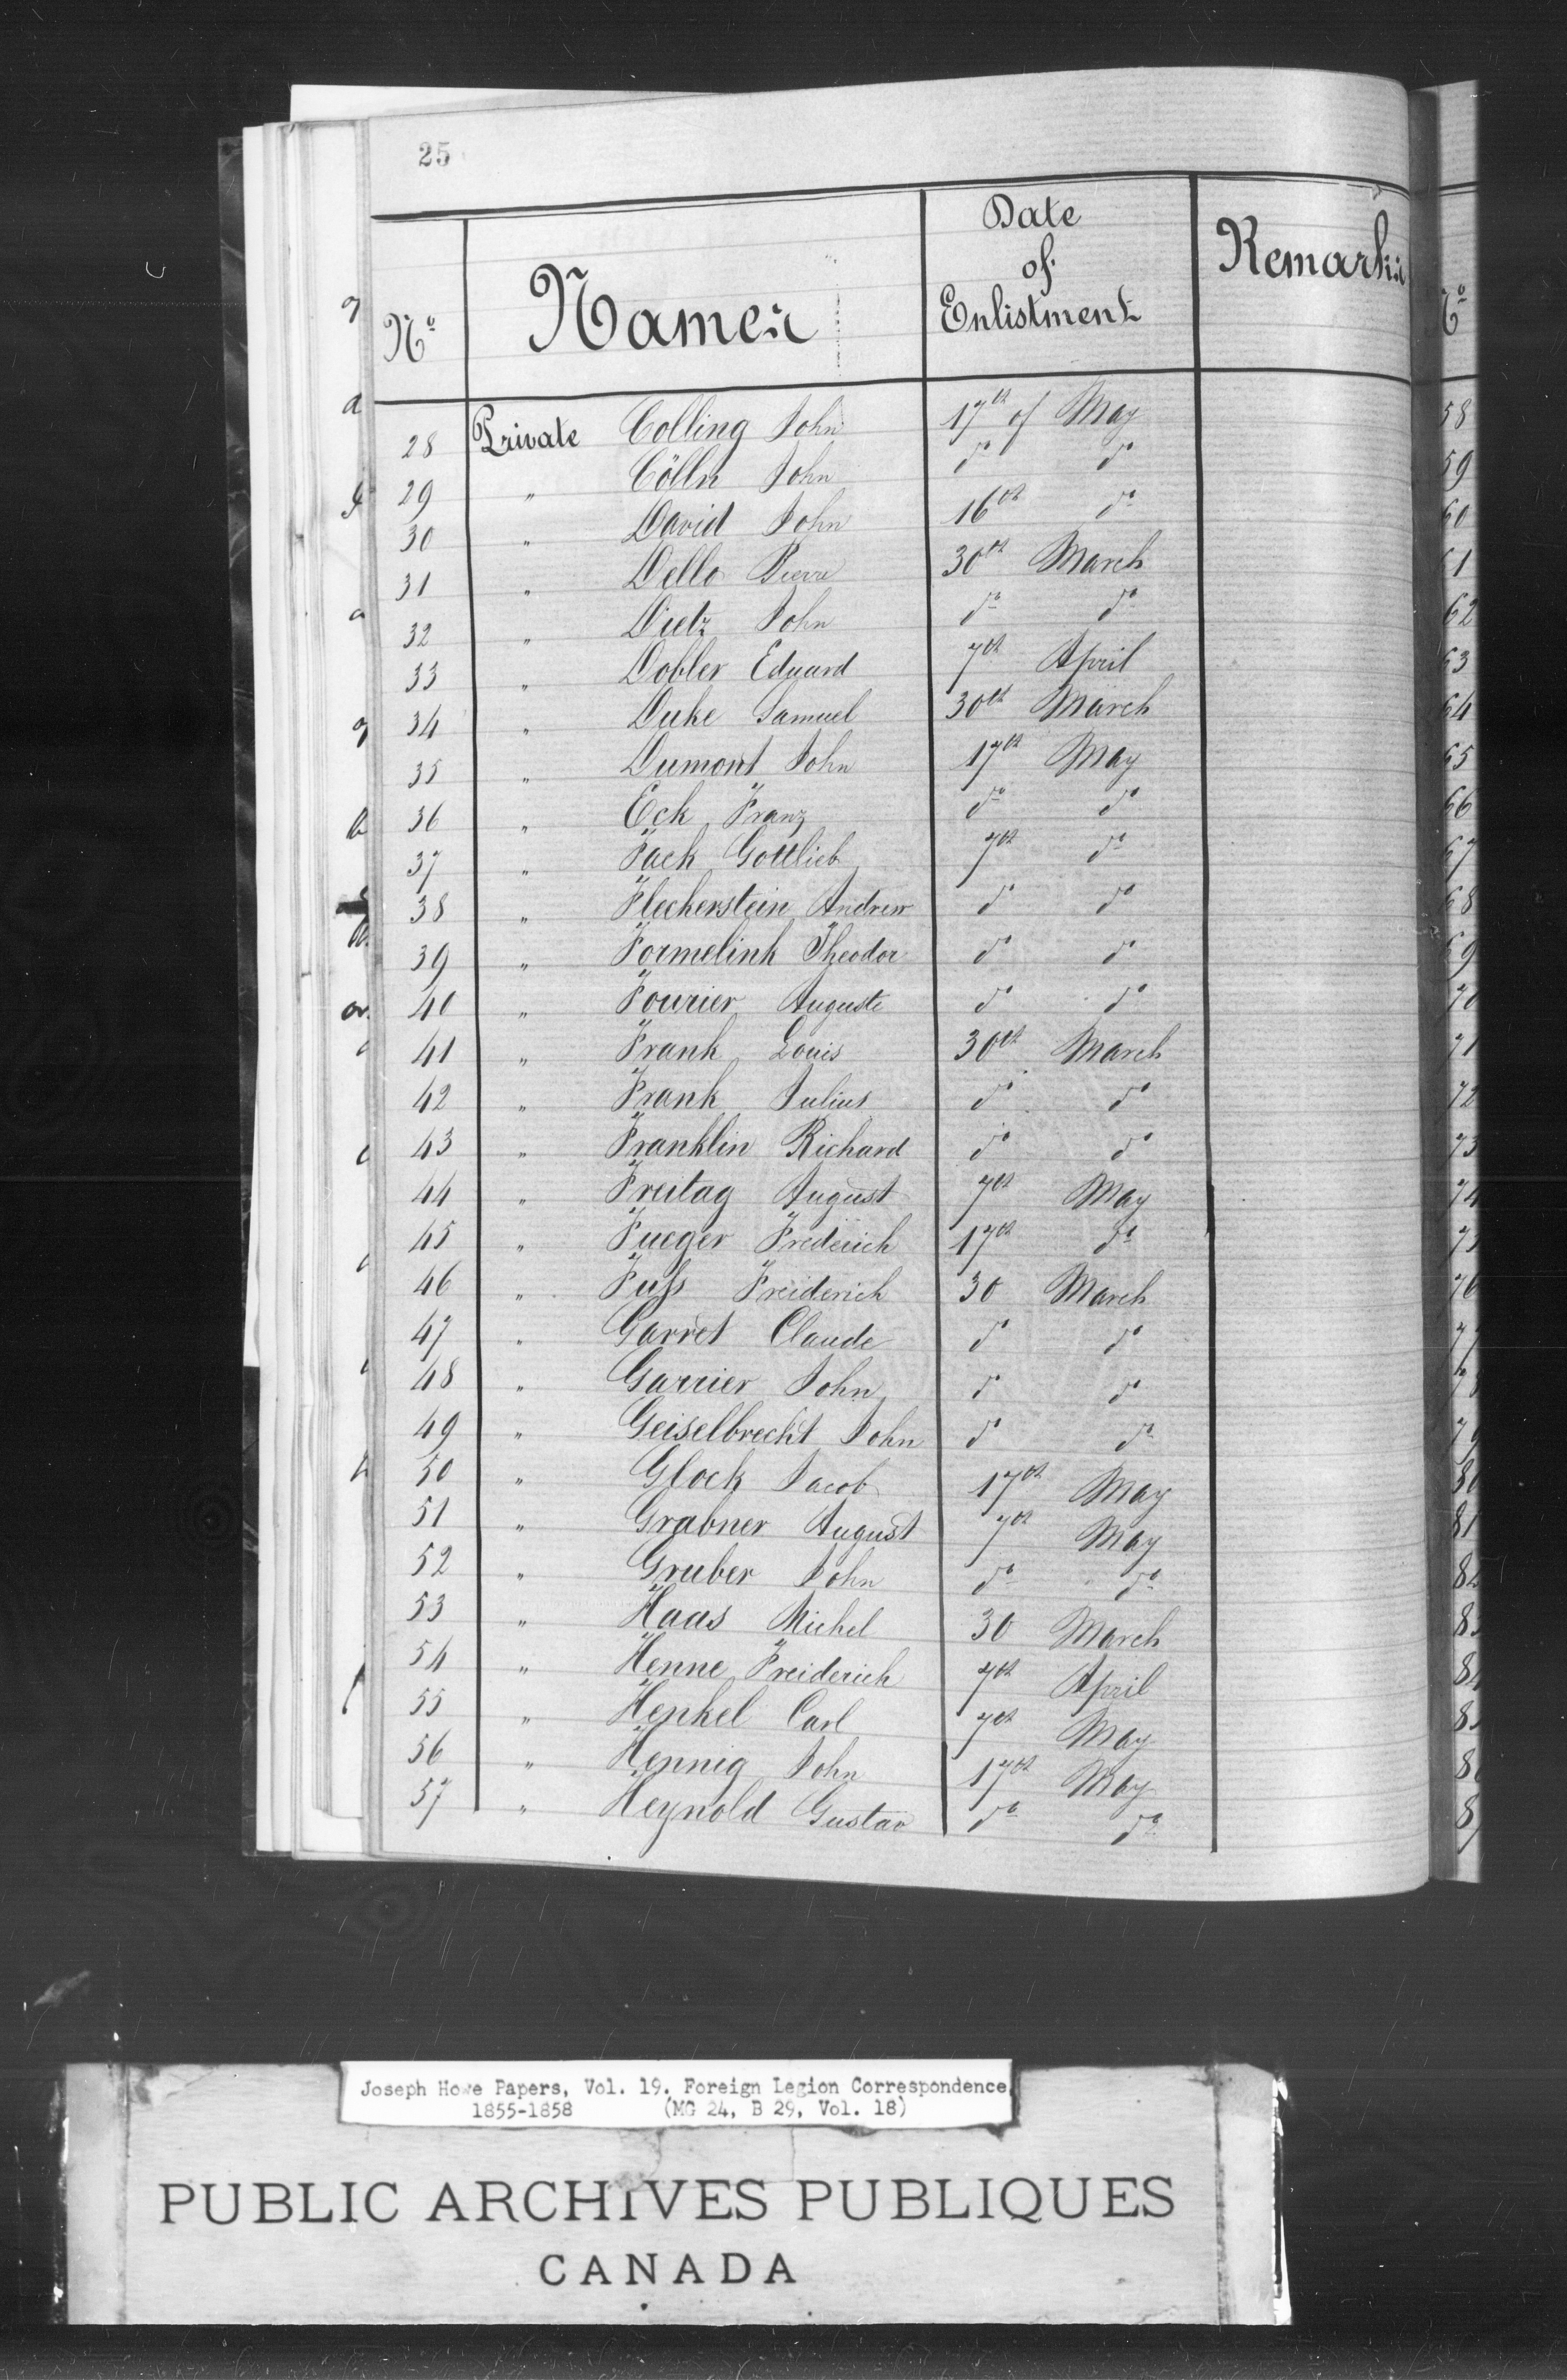 25
Nº Names Date of Enlistment Remarks
28 Private Colling John 17th of May
29 " Cölln John dº dº
30 " David John 16th dº
31 " Dello Pierre 30th March
32 " Dietz John dº dº
33 " Dobler Eduard 7th April
34 " Duke Samuel 30th March
35 " Dumont John 17th May
36 " Eck Franz dº dº
37 " Fack Gottlieb 7th dº
38 " Fleckerstein Andrew dº dº
39 " Formelink Theodor dº dº
40 " Fourier Auguste dº dº
41 " Frank Louis 30th March
42 " Frank Julius dº dº
43 " Franklin Richard dº dº
44 " Freitag August 7th May
45 " Fueger Frederich 17th dº
46 " Fuß Freiderich 30 March
47 " Garret Claude dº dº
48 " Garrier John dº dº
49 " Geiselbrecht John dº dº
50 " Glock Jacob 17th May
51 " Grabner August 7th May
52 " Gruber John dº dº
53 " Haas Michel 30 March
54 " Henne Freiderich 7th April
55 " Henkel Carl 7th May
56 " Hennig John 17th May
57 " Heynold Gustav dº dº
Joseph Howe Papers, Vol. 19. Foreign Legion Correspondence,
1855-1858 (MG 24, B 29, Vol. 18)
PUBLIC ARCHIVES PUBLIQUES
CANADA